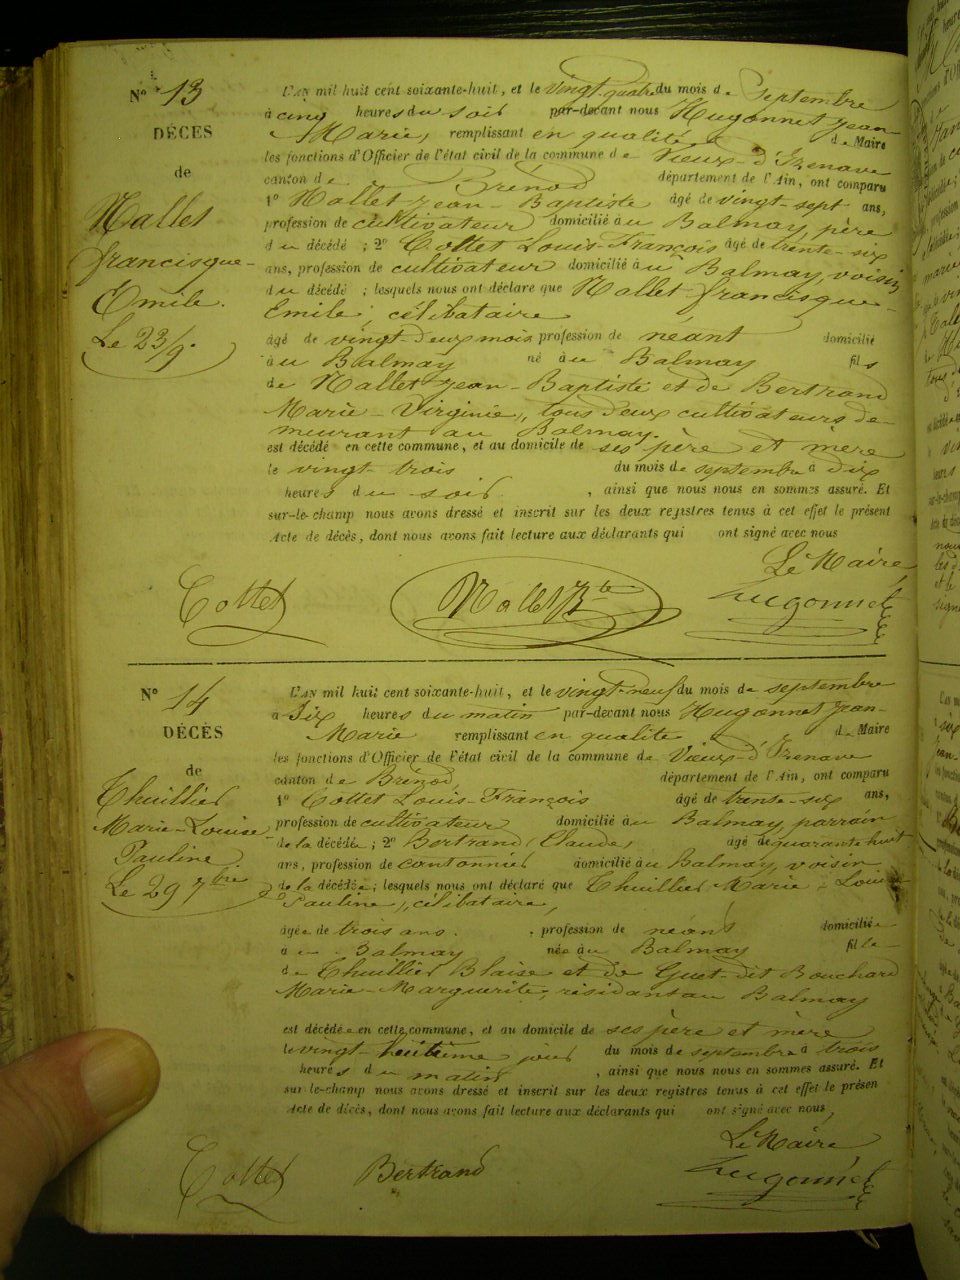 N° 13
DÉCÈS
de
Mallet
francisque-
Emile.
Le 23/9.
L'AN mil huit cent soixante-huit, et le vingt-quatre du mois de Septembre
à cinq heures du soir par-devant nous Hugonnet Jean-
Marie, remplissant en qualité de Maire
les fonctions d'Officier de l'état civil de la commune de Vieux-d'Izenave
canton de Brénod département de l'Ain, ont comparu
1° Mallet Jean-Baptiste âgé de vingt-sept ans,
profession de cultivateur domicilié à u Balmay, père
du décédé ; 2° Cottet Louis-François âgé de trente-six
ans, profession de cultivateur domicilié à u Balmay, voisin
du décédé ; lesquels nous ont déclaré que Mallet francisque
Emile, célibataire
âgé de vingt-deux mois profession de néant domicilié
à u Balmay né à u Balmay fils
de Mallet Jean-Baptiste et de Bertrand
Marie-Virginie, tous deux cultivateurs de-
meurant au Balmay.
est décédé en cette commune, et au domicile de ses père et mère
le vingt-trois du mois de septembre à dix
heures du soir, ainsi que nous nous en sommes assuré. Et
sur-le-champ nous avons dressé et inscrit sur les deux registres tenus à cet effet le présent
Acte de décès, dont nous avons fait lecture aux déclarants qui ont signé avec nous
Le Maire,
Cottet Mallet Bte Hugonnet
N° 14
DÉCÈS
de
Thuillier
Marie-Louise
Pauline.
Le 29 7bre
L'AN mil huit cent soixante-huit, et le vingt-neuf du mois de septembre
à dix heures du matin par-devant nous Hugonnet Jean-
Marie remplissant en qualité de Maire
les fonctions d'Officier de l'état civil de la commune de Vieux-d'Izenave
canton de Brénod département de l'Ain, ont comparu
1° Cottet Louis-François âgé de trente-six ans,
profession de cultivateur domicilié à u Balmay, parrain
de la décédée ; 2° Bertrand Claude, âgé de quarante huit
ans, profession de cantonnier domicilié à u Balmay, voisin
de la décédée ; lesquels nous ont déclaré que Thuillier Marie-Louise
Pauline, célibataire,
âgée de trois ans. profession de néant domiciliée
à u Balmay née à u Balmay fille
de Thuillier Blaise et de Guet-dit Bouchard
Marie-Marguerite, résidant au Balmay
est décédée en cette commune, et au domicile de ses père et mère
le vingt-huitième jour du mois de septembre à trois
heures du matin, ainsi que nous nous en sommes assuré. Et
sur-le-champ nous avons dressé et inscrit sur les deux registres tenus à cet effet le présen
Acte de décès, dont nous avons fait lecture aux déclarants qui ont signé avec nous,
Le Maire
Cottet Bertrand Hugonnet